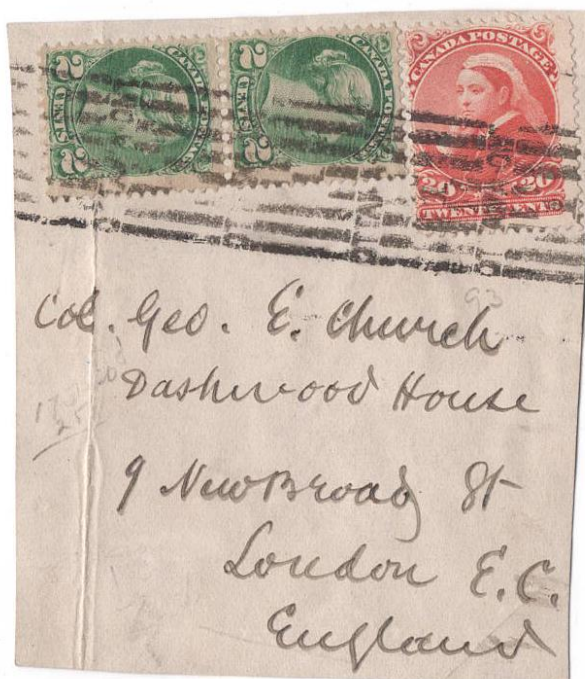 CANADA POSTAGE
2 CENTS 2
CANADA POSTAGE
2 CENTS 2
CANADA POSTAGE
20 20
TWENTY CENTS
93
Col. Geo. E. Church
Dashwood House
9 New Broad St
London E.C.
England